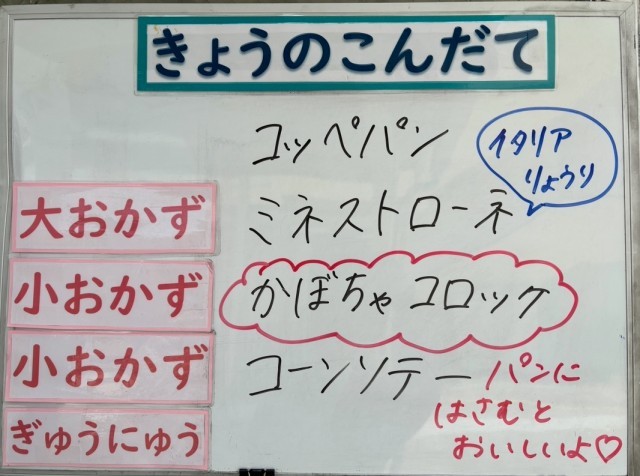 きょうのこんだて
コッペパン
イタリア
りょうり
大おかず ミネストローネ
小おかず かぼちゃコロッケ
小おかず コーンソテー パンに
はさむと
おいしいよ♡
ぎゅうにゅう